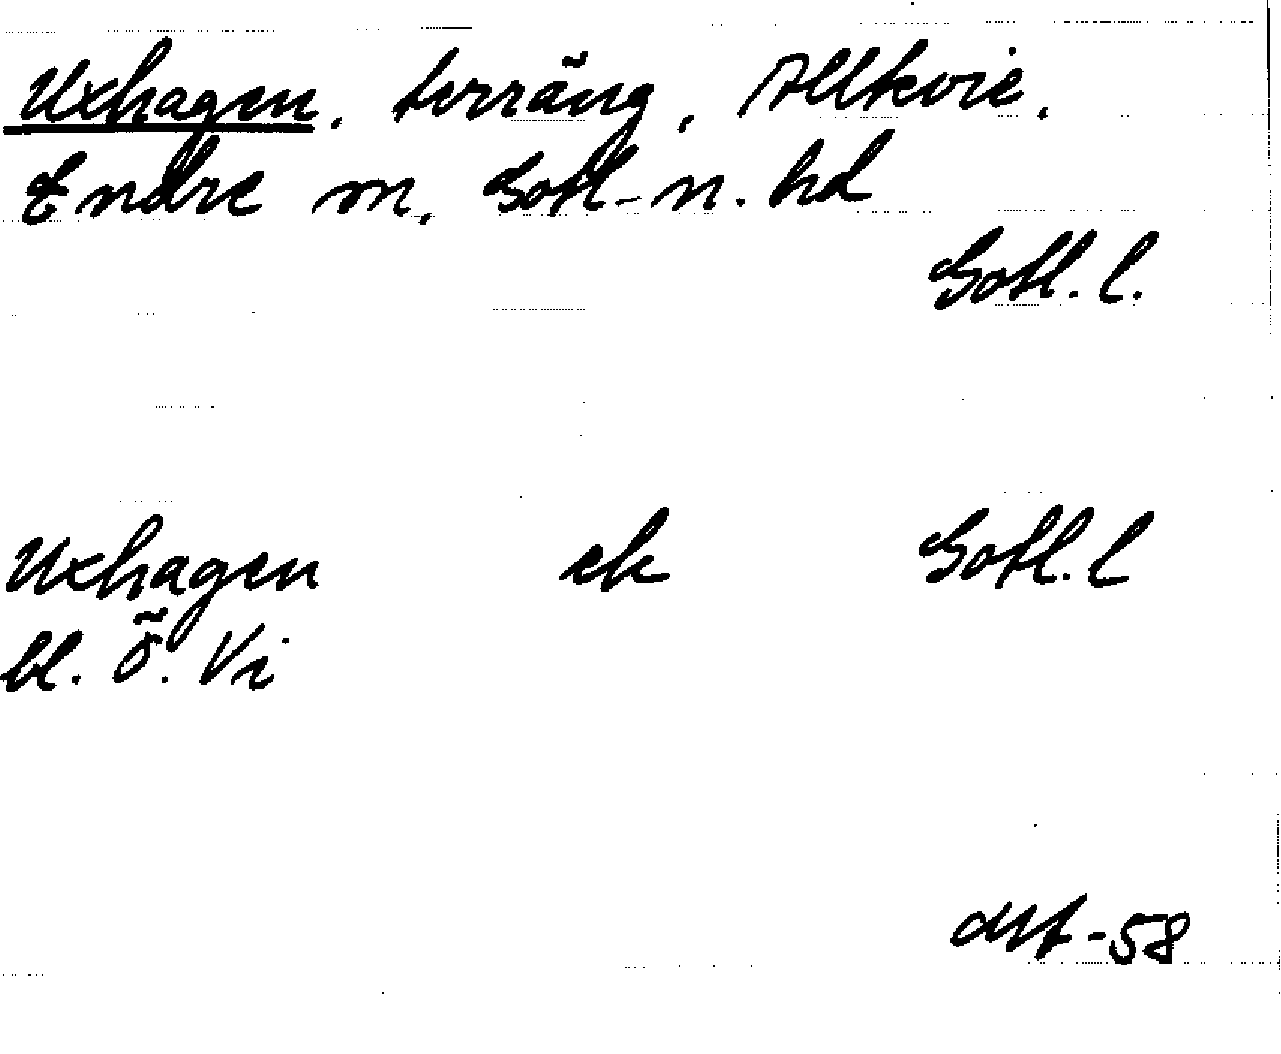 Uxhagen. terräng, Allkvie.
Endre sn, Gotl-n. hd
Gotl. l.
Uxhagen ek Gotl. l
bl. Ö. Vi
-58